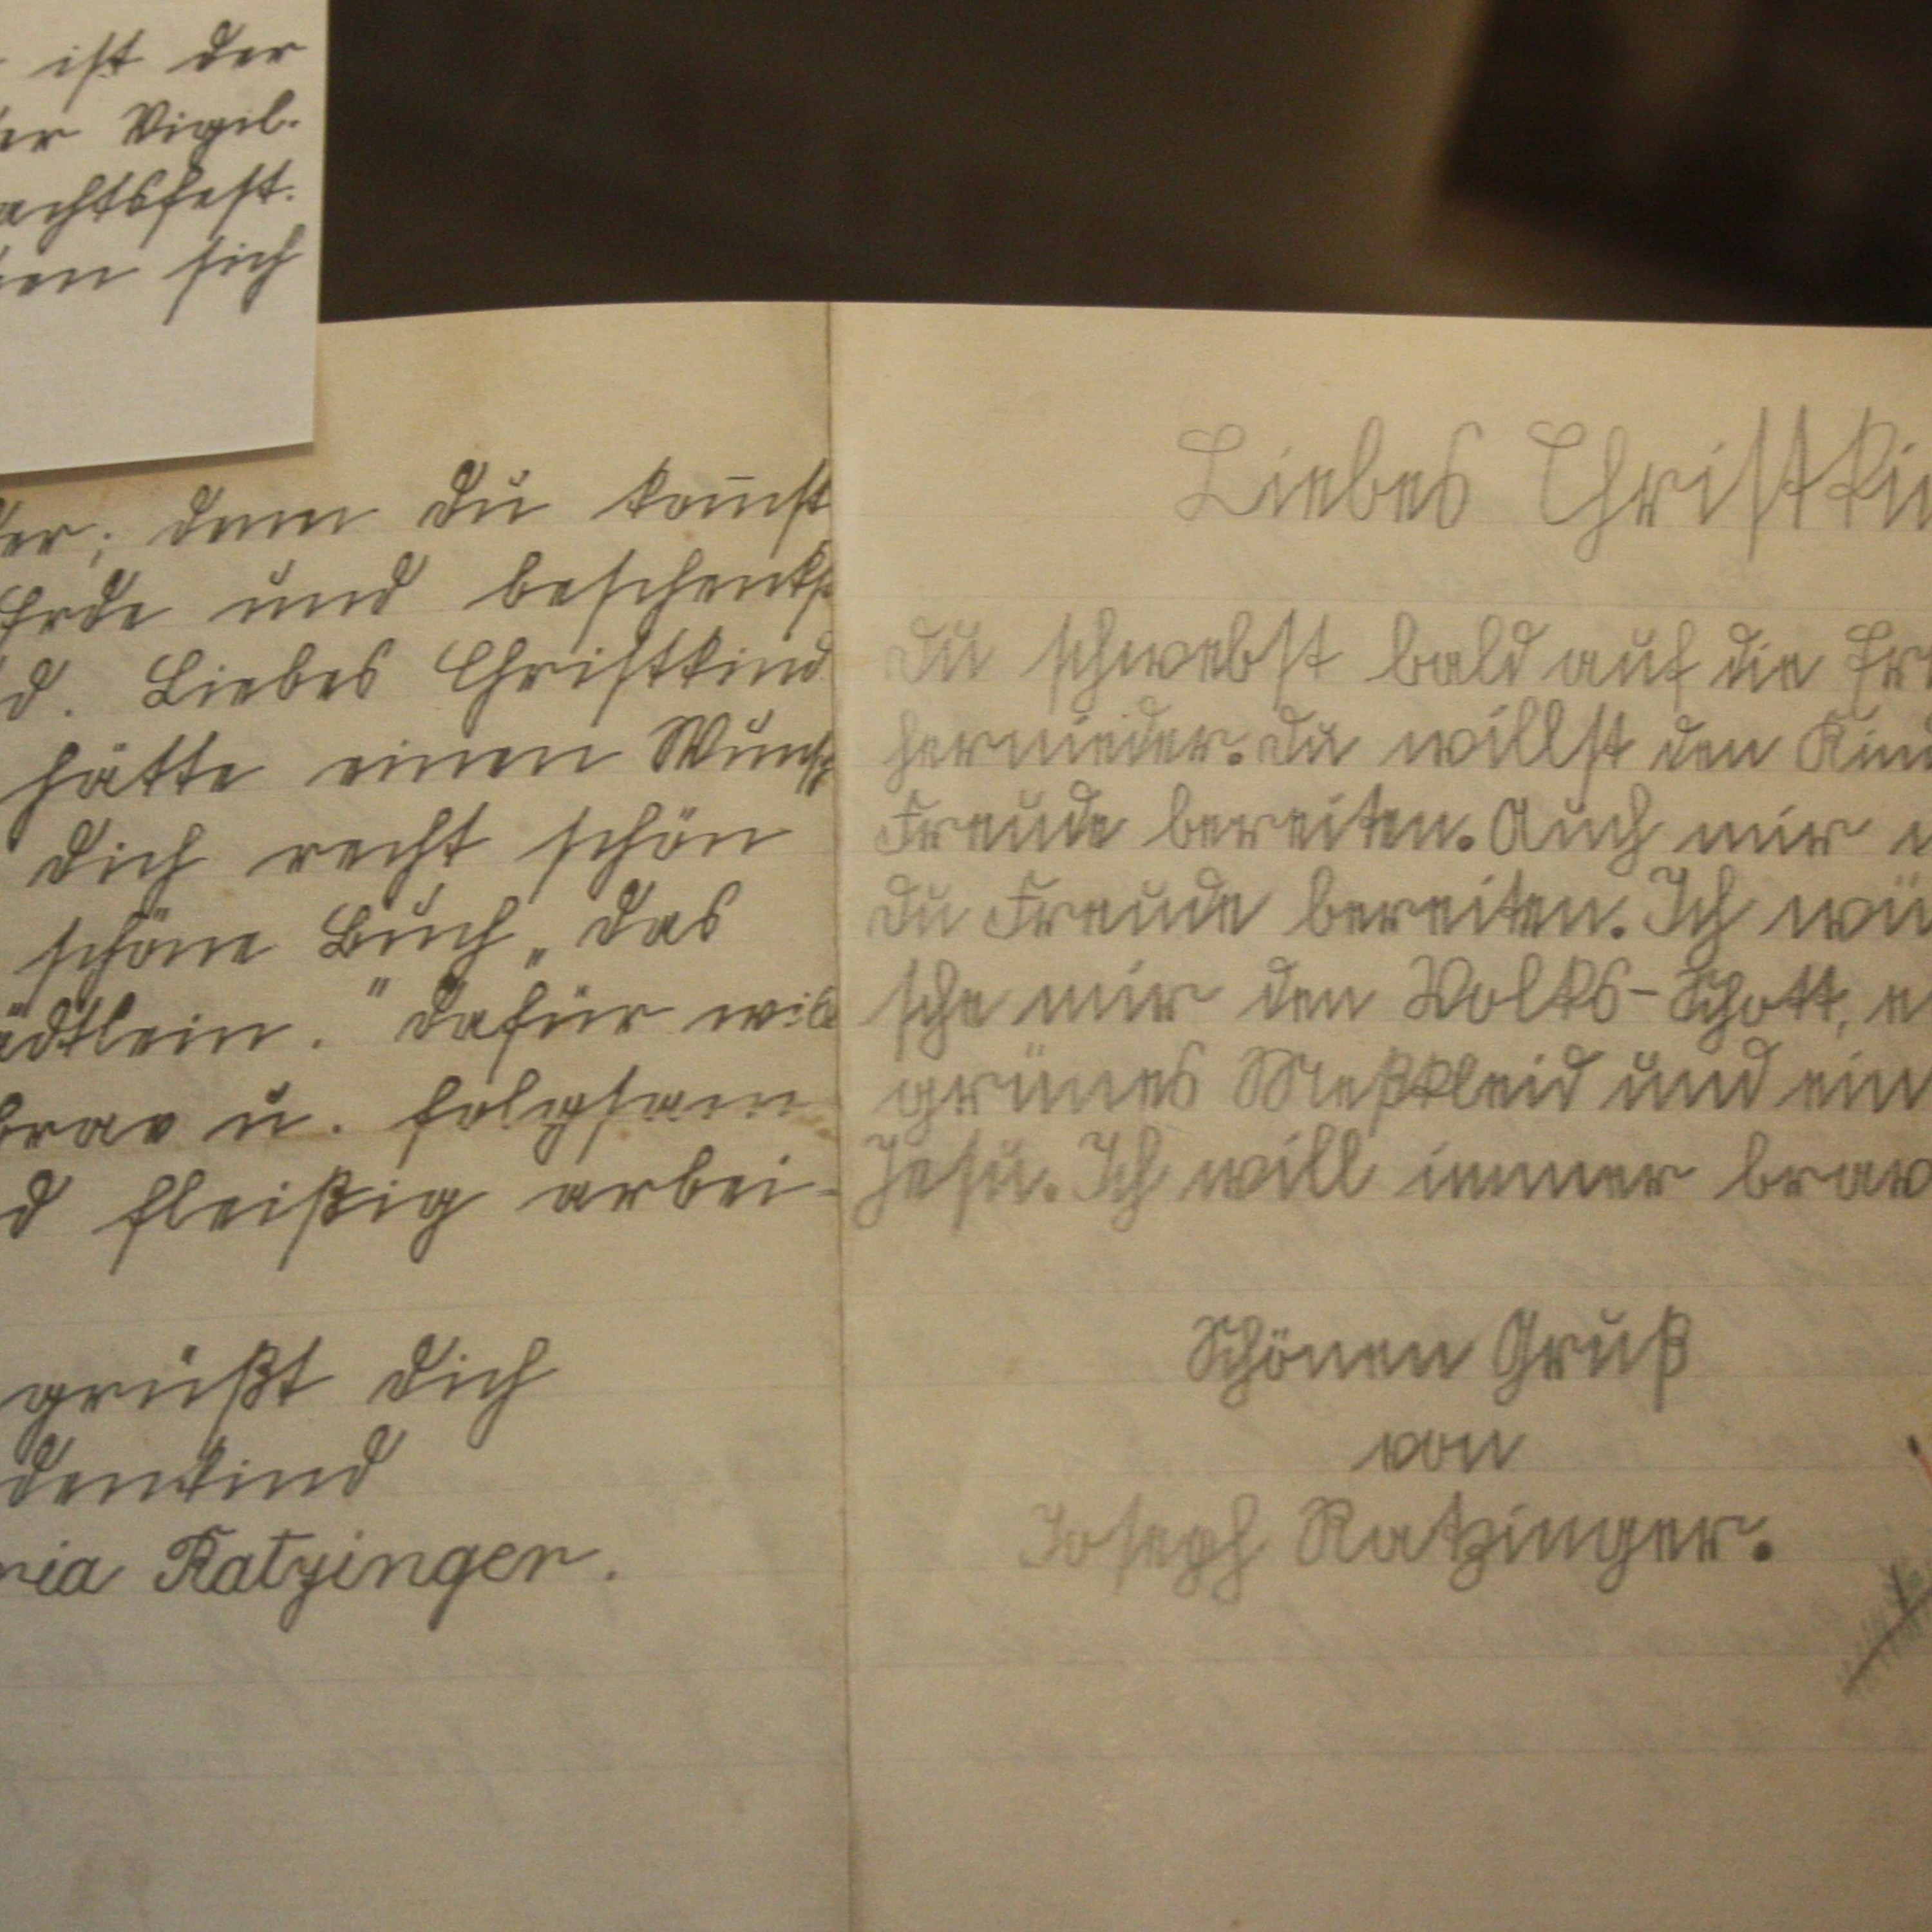 ist der
er Vigil.
achtsfest.
en sich
er; denn du kom̄st
Erde und beschenkst
d. Liebes Christkind
hätte einen Wunsch
dich recht schön
schöne Buch „das
ädtlein." dafür will
brav u. folgsam
d fleißig arbei-
grüßt dich
denkind
ria Ratzinger.
Liebes Christki
Du schwebst bald auf die Erd
hernieder. Du willst den Kind
Freude bereiten. Auch mir
du Freude bereiten. Ich wü
sche mir den Volks-Schott, e
grünes Meßkleid und ein
Jesu. Ich will immer brav
Schönen Gruß
von
Joseph Ratzinger.